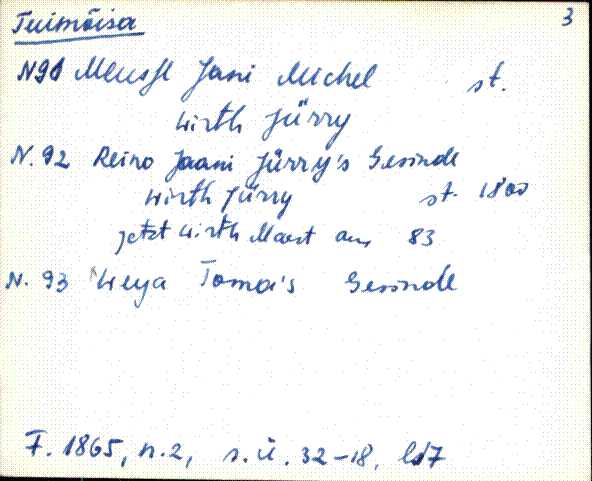 Tuimõisa 3
N91 Jani Michel st.
Wirth Jürry
N. 92 Reino Jaani Jürry's Gesinde
Wirth Jürry st. 1800
jetzt Wirth Mart aus 83
N. 93 Weya Toma's Gesinde
F. 1865, n. 2, s. ü. 32-18, l. 17